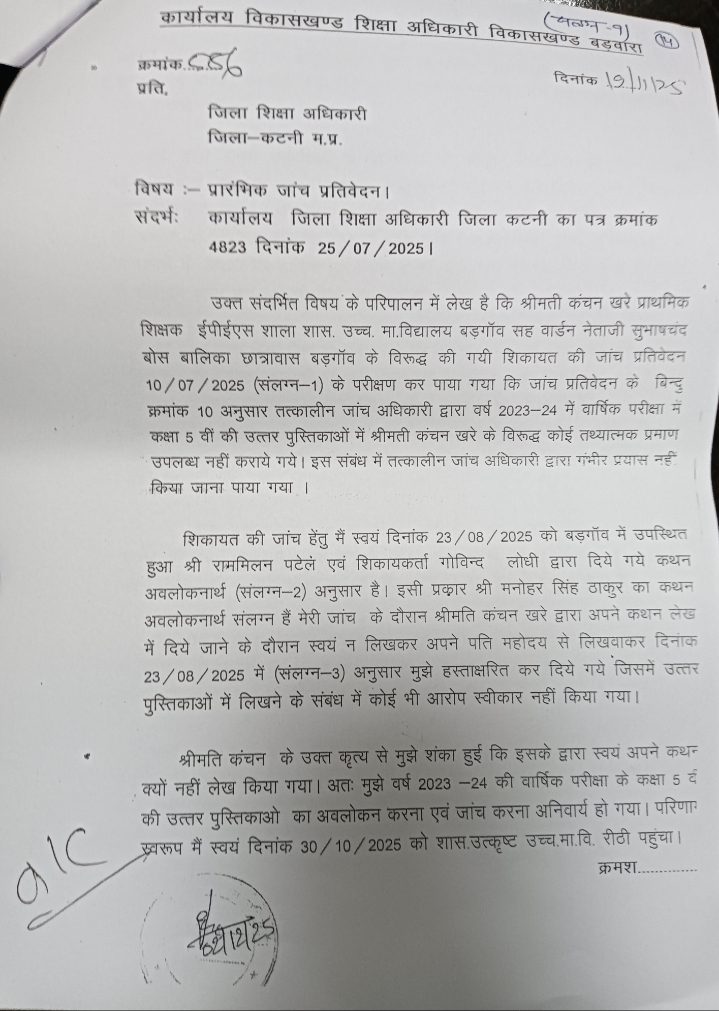 (संलग्न-१)
कार्यालय विकासखण्ड शिक्षा अधिकारी विकासखण्ड बड़वारा
14
क्रमांक..556
दिनांक 19/11/25
प्रति,
जिला शिक्षा अधिकारी
जिला–कटनी म.प्र.
विषय :– प्रारंभिक जांच प्रतिवेदन।
संदर्भः कार्यालय जिला शिक्षा अधिकारी जिला कटनी का पत्र क्रमांक
4823 दिनांक 25/07/2025।
उक्त संदर्भित विषय के परिपालन में लेख है कि श्रीमती कंचन खरे प्राथमिक
शिक्षक ईपीईएस शाला शास. उच्च. मा.विद्यालय बड़गॉव सह वार्डन नेताजी सुभाषचंद
बोस बालिका छात्रावास बड़गॉव के विरूद्ध की गयी शिकायत की जांच प्रतिवेदन
10/07/2025 (संलग्न–1) के परीक्षण कर पाया गया कि जांच प्रतिवेदन के बिन्दु
क्रमांक 10 अनुसार तत्कालीन जांच अधिकारी द्वारा वर्ष 2023–24 में वार्षिक परीक्षा में
कक्षा 5 वीं की उत्तर पुस्तिकाओं में श्रीमती कंचन खरे के विरूद्ध कोई तथ्यात्मक प्रमाण
उपलब्ध नहीं कराये गये। इस संबंध में तत्कालीन जांच अधिकारी द्वारा गंभीर प्रयास नहीं
किया जाना पाया गया ।
शिकायत की जांच हेतु मैं स्वयं दिनांक 23/08/2025 को बड़गॉव में उपस्थित
हुआ श्री राममिलन पटेल एवं शिकायकर्ता गोविन्द लोधी द्वारा दिये गये कथन
अवलोकनार्थ (संलग्न–2) अनुसार है। इसी प्रकार श्री मनोहर सिंह ठाकुर का कथन
अवलोकनार्थ संलग्न हैं मेरी जांच के दौरान श्रीमति कंचन खरे द्वारा अपने कथन लेख
में दिये जाने के दौरान स्वयं न लिखकर अपने पति महोदय से लिखवाकर दिनांक
23/08/2025 में (संलग्न–3) अनुसार मुझे हस्ताक्षरित कर दिये गये जिसमें उत्तर
पुस्तिकाओं में लिखने के संबंध में कोई भी आरोप स्वीकार नहीं किया गया।
श्रीमति कंचन के उक्त कृत्य से मुझे शंका हुई कि इसके द्वारा स्वयं अपने कथन
क्यों नहीं लेख किया गया। अतः मुझे वर्ष 2023 –24 की वार्षिक परीक्षा के कक्षा 5
की उत्तर पुस्तिकाओ का अवलोकन करना एवं जांच करना अनिवार्य हो गया। परिणाम
स्वरूप मैं स्वयं दिनांक 30/10/2025 को शास.उत्कृष्ट उच्च.मा.वि. रीठी पहुंचा।
क्रमश..............